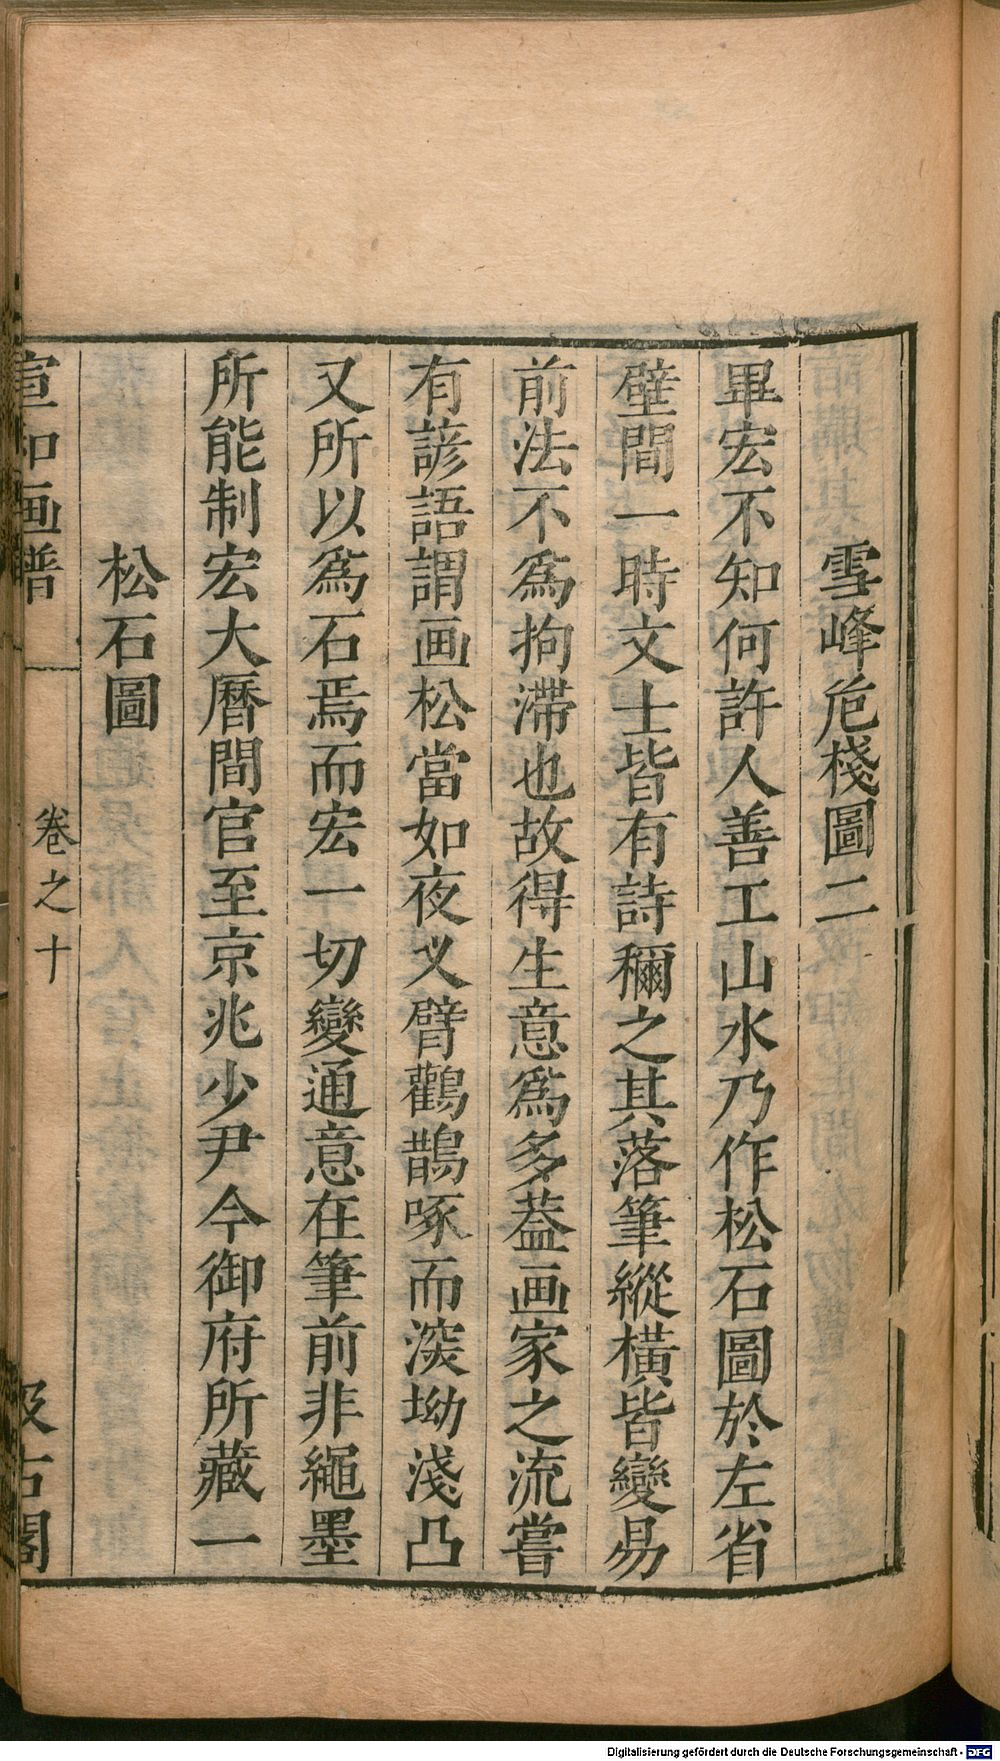 雪峰危棧圖二
畢宏不知何許人善工山水乃作松石圖於左省
壁間一時文士皆有詩稱之其落筆縱橫皆變易
前法不爲拘滯也故得生意爲多蓋画家之流嘗
有諺語謂画松當如夜叉臂鸛鵲啄而深坳淺凸
又所以爲石焉而宏一切變通意在筆前非繩墨
所能制宏大曆間官至京兆少尹今御府所藏一
松石圖
宣和画譜
卷之十
汲古閣
Digitalisierung gefördert durch die Deutsche Forschungsgemeinschaft - DFG